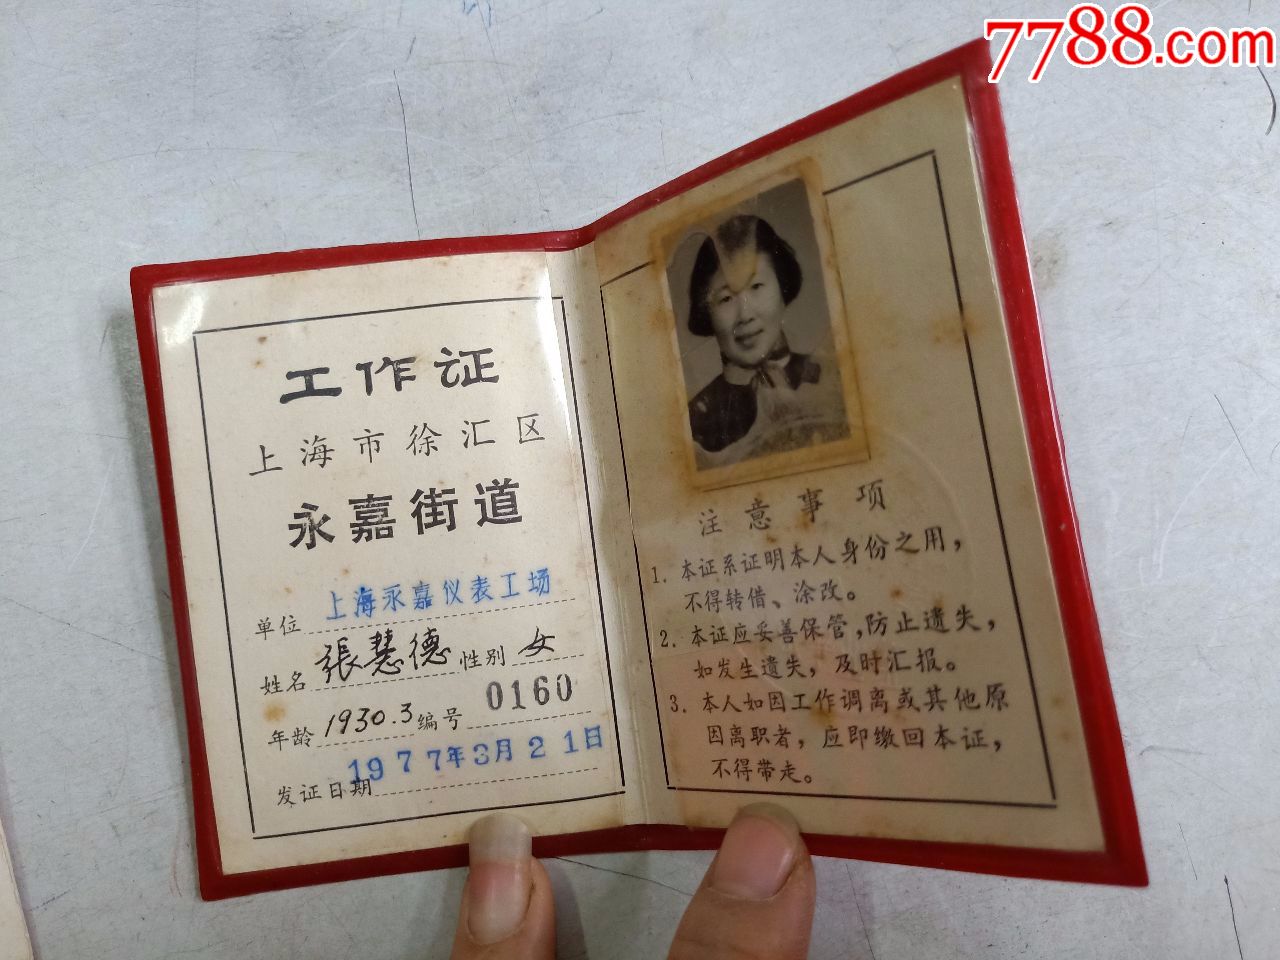 7788.com
工作证
上海市徐汇区
永嘉街道
单位 上海永嘉仪表工场
姓名 張慧德 性别 女
年龄 1930.3 编号 0160
发证日期 1977年3月21日
注意事项
1. 本证系证明本人身份之用，
不得转借、涂改。
2. 本证应妥善保管，防止遗失，
如发生遗失，及时汇报。
3. 本人如因工作调离或其他原
因离职者，应即缴回本证，
不得带走。